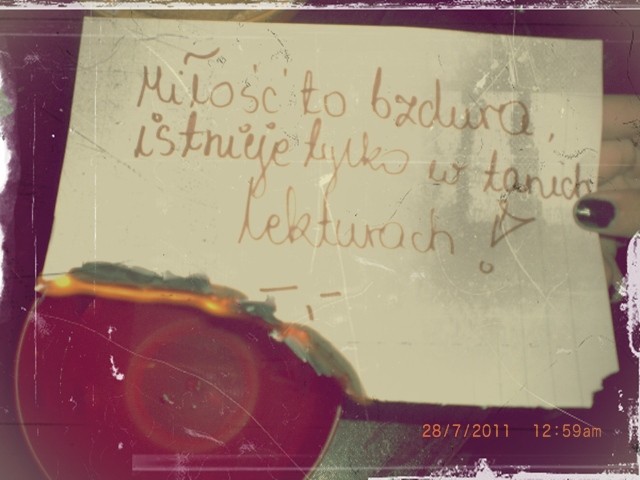 Miłość to bzdura,
istnieje tylko w tanich
lekturach!
-,-
28/7/2011 12:59am